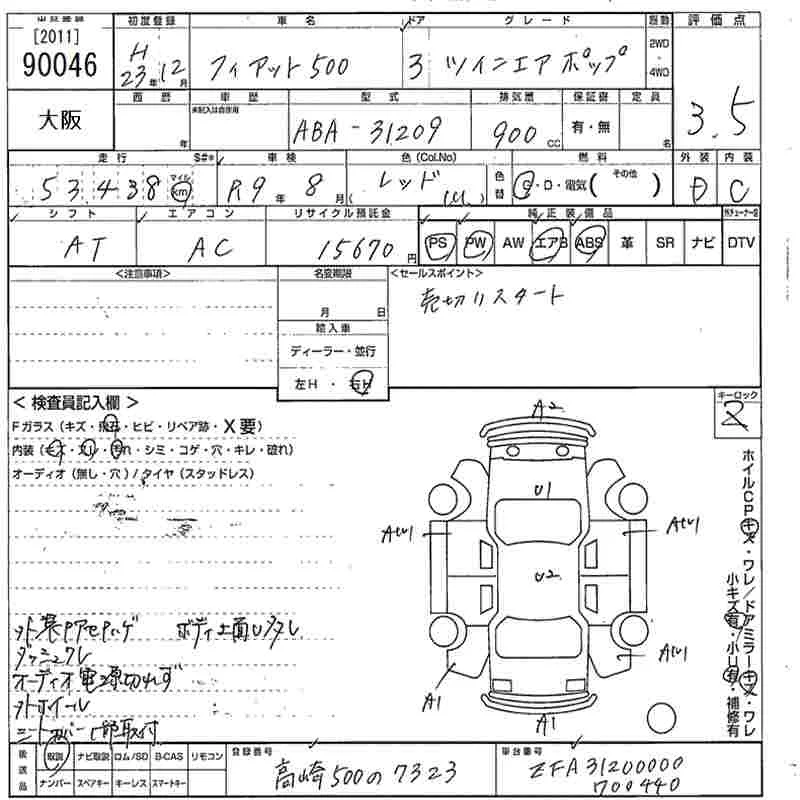 [2011]
90046
初度登録
H 23年 12月
車名
フィアット500
ドア
3
グレード
ツインエアポップ
駆動
2WD・4WD
評価点
3.5
大阪
西暦
年
車歴
未記入は自家用
型式
ABA-31209
排気量
900 CC
保証書
有・無
定員
名
走行
S#*
53,438
マイル
km
車検
R9年 8月(
色(Col.No)
レッド
色替
燃料
G・D・電気( その他 )
外装
D
内装
C
シフト
AT
エアコン
AC
リサイクル預託金
15670円
純正装備品
PS PW AW エアB ABS 革 SR ナビ DTV
<注意事項>
名変期限
月 日
輸入車
ディーラー・並行
左H・右H
<セールスポイント>
売切りスタート
キーロック
2
< 検査員記入欄 >
Fガラス(キズ・飛石・ヒビ・リペア跡・X要)
内装(キズ・スレ・汚れ・シミ・コゲ・穴・キレ・破れ)
オーディオ(無し・穴)/タイヤ(スタッドレス)
A2
U1
A(U)1
A(U)1
U2
A(U)1
A1
A1
ホイルCPキズ・ワレ/ドアミラーキズ・ワレ
小キズ有・小U有・補修有
ボディ上面Uタレ
オーディオ電源切れず
外ホイール
後送品
取説 ナビ取説 ロム/SD B-CAS リモコン
ナンバー スペアキー キーレス スマートキー
登録番号
高崎500の7323
車台番号
ZFA31200000
700440